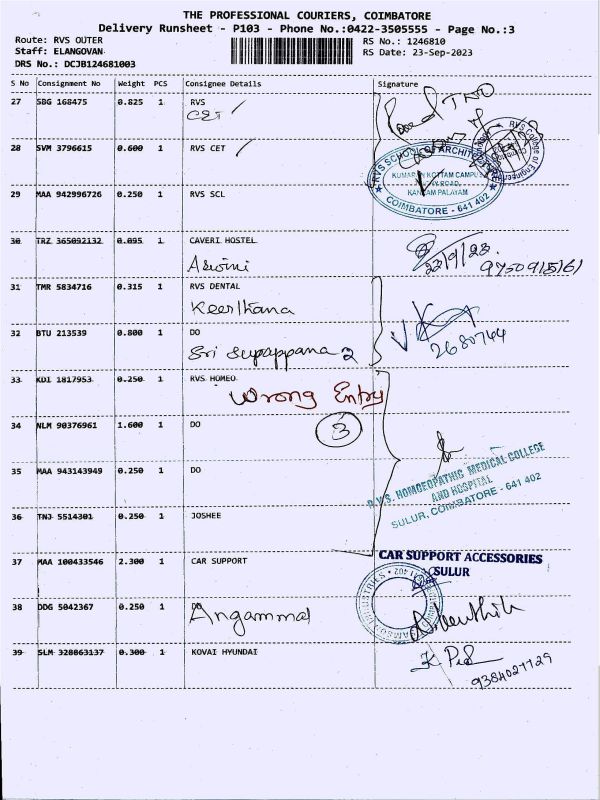 THE PROFESSIONAL COURIERS, COIMBATORE
Delivery Runsheet - P103 - Phone No.:0422-3505555 - Page No.:3
Route: RVS OUTER
RS No.: 1246810
Staff: ELANGOVAN
RS Date: 23-Sep-2023
DRS No.: DCJB124681003
S No Consignment No Weight PCS Consignee Details Signature
27 SBG 168475 0.825 1 RVS
CET
28 SVM 3796615 0.600 1 RVS CET
29 MAA 942996726 0.250 1 RVS SCL
RVS SCHOOL OF ARCHITECTURE
KUMARAN KOTTAM CAMPUS
KANNAM PALAYAM
COIMBATORE - 641 402
RVS College of Engineering
30 TRZ 365092132 0.095 1 CAVERI HOSTEL
Aswini
23/9/23
9750915161
31 TMR 5834716 0.315 1 RVS DENTAL
Keerthana
32 BTU 213539 0.800 1 DO
Sri 2
2680744
33 KDI 1817953 0.250 1 RVS HOMEO
Wrong Entry
3
34 NLM 90376961 1.600 1 DO
35 MAA 943143949 0.250 1 DO
R.V.S. HOMOEOPATHIC MEDICAL COLLEGE
AND HOSPITAL
SULUR, COIMBATORE - 641 402
36 TNJ 5514301 0.250 1 JOSHEE
37 MAA 100433546 2.300 1 CAR SUPPORT
CAR SUPPORT ACCESSORIES
SULUR
38 DDG 5042367 0.250 1 DO
Angammal
39 SLM 328863137 0.300 1 KOVAI HYUNDAI
9384027729